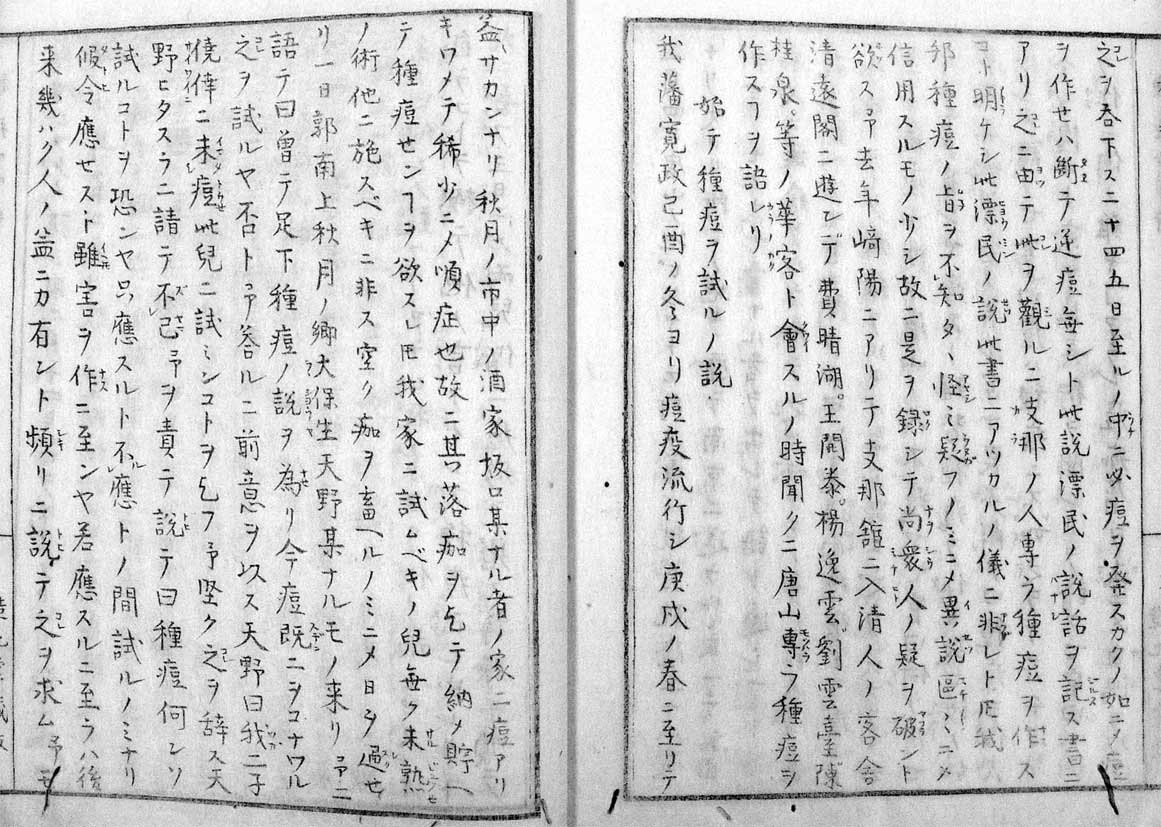 之ヲ呑下ス二十四五日至ルノ中ニ必痘ヲ発スカクノ如ニメ痘
ヲ作セハ断テ逆痘無シト此説漂民ノ説話ヲ記ス書ニ
アリ之ニ由テ此ヲ觀ルニ支那ノ人專ラ種痘ヲ作ス
ヿ明ケシ此漂民ノ説此書ニアツカルノ儀ニ非レト𪜈我人
邦種痘ノ旨ヲ不知タヽ怪ミ疑フノミニメ異説區ミニメ
信用スルモノ少シ故ニ是ヲ録シテ尚衆人ノ疑ヲ破ント
欲ス予去年﨑陽ニアリテ支那舘ニ入清人ノ客舎
清遠閣ニ遊ンデ費晴湖。王開泰。楊逸雲劉雲臺陳
桂泉。等ノ華客ト會スルノ時聞クニ唐山專ラ種痘ヲ
作スヿヲ語レリ
始テ種痘ヲ試ルノ説
我藩寛政己酉ノ冬ヨリ痘疫流行シ庚戌ノ春ニ至リテ
益サカンナリ秋月ノ市中ノ酒家坂口某ナル者ノ家ニ痘アリ
キワメテ稀少ニメ順症也故ニ其落痂ヲ乞テ納メ貯ヘ
テ種痘センヿヲ欲スレ𪜈我家ニ試ムベキノ兒無ク未熟
ノ術他ニ施スベキニ非ス空ク痂ヲ畜ヘルノミニメ日ヲ過セ
リ一日郭南上秋月ノ郷大保生天野某ナルモノ来リ予ニ
語テ曰曽テ足下種痘ノ説ヲ為リ今痘既ニヲコナワル
之ヲ試ルヤ否ト予答ルニ前意ヲ以ス天野曰我二子
僥倖ニ未痘此兒ニ試ミンコトヲ乞フ予堅ク之ヲ辞ス天
野ヒタスラニ請テ不已予ヲ責テ説テ曰種痘何ンソ
試ルコトヲ恐ンヤ只應スルト不應トノ間試ルノミナリ
假令應セスト雖害ヲ作ニ至ンヤ若應スルニ至ラハ後
来幾ハク人ノ益ニカ有ント頻リニ説テ之ヲ求ム予モ